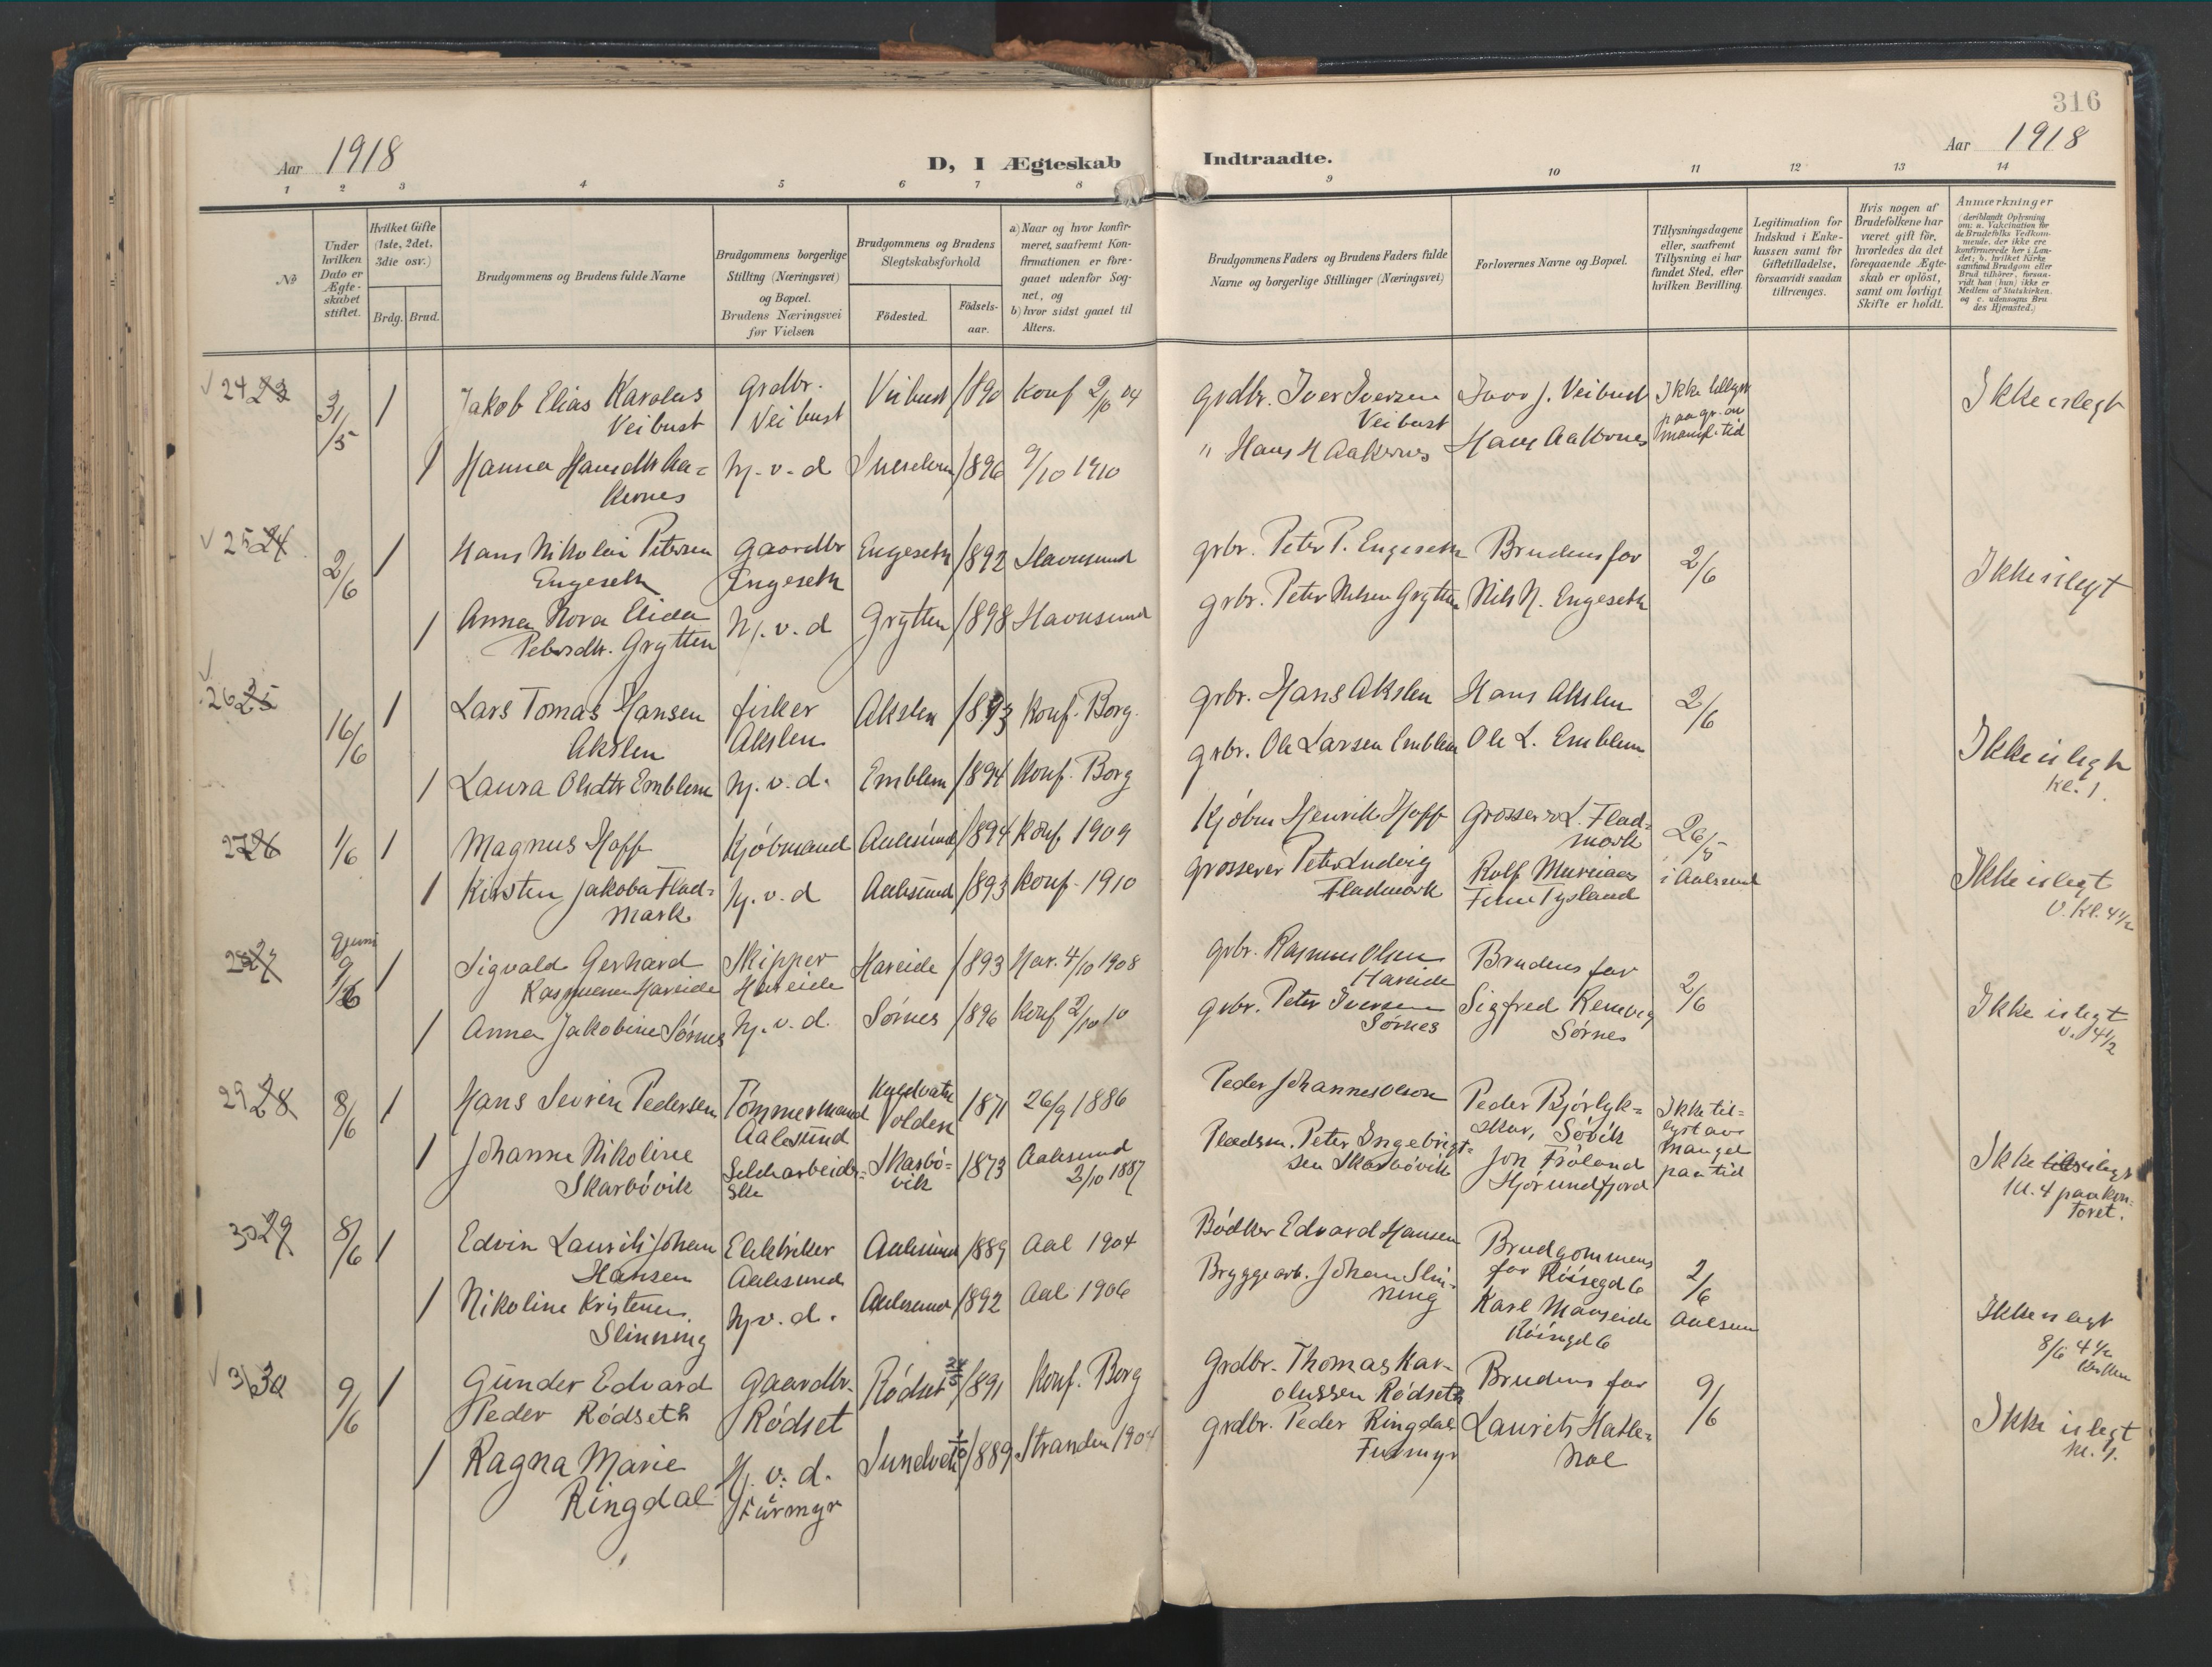 316
Aar 1918
D, I Ægteskab
Indtraadte.
Aar 1918
1 2 3 4 5 6 7 8
9 10 11 12 13 14
No
Under hvilken Dato er Ægteskabet stiftet.
Hvilket Gifte (1ste, 2det, 3die osv.)
Brdg. Brud.
Brudgommens og Brudens fulde Navne
Brudgommens borgerlige Stilling (Næringsvei) og Bopæl. Brudens Næringsvei før Vielsen
Brudgommens og Brudens Slegtskabsforhold
Födested.
Födsels-aar.
a) Naar og hvor konfirmeret, saafremt Konfirmationen er foregaaet udenfor Sognet, og
b) hvor sidst gaaet til Alters.
Brudgommens Faders og Brudens Faders fulde Navne og borgerlige Stillinger (Næringsvei)
Forlovernes Navne og Bopæl.
Tillysningsdagene eller, saafremt Tillysning ei har fundet Sted, efter hvilken Bevilling.
Legitimation for Indskud i Enkekassen samt for Giftetilladelse, forsaavidt saadan tiltrænges.
Hvis nogen af Brudefolkene har været gift för, hvorledes da det foregaaende Ægteskab er oplöst, samt om lovligt Skifte er holdt.
Anmærkninger
(deriblandt Oplysning om: a. Vakcination for de Brudefolks Vedkommende, der ikke ere konfirmerede her i Landet; b. hvilket Kirkesamfund Brudgom eller Brud tilhörer, forsaavidt han (hun) ikke er Medlem af Statskirken. og c. udensogns Brudes Hjemsted.)
24 23
31/5 1
Jakob Elias Karolus Veibust
Grdbr. Veibust
Veibust 1890
Konf 2/10 04
Grdbr. Iver Iversen Veibust
Ivar J. Veibust
Ikke tillyst paa gr. av mangl. tid
Ikke i slegt
1 Hanna Hansdtr Aakernes
Hj. v. d
1896
9/10 1910
" Hans H Aakernes
Hans Aakernes
25 24
2/6 1
Hans Nikolai Petersen Engeseth
Gaardbr Engeseth
Engeseth 1892
Havnsund
grbr. Peter P. Engeseth
Brudens far
2/6
Ikke i slegt
1 Anna Nora Elida Petersdtr. Grytten
Hj. v. d
Grytten 1898
Havnsund
grbr. Peter Nilsen Grytten
Nils N. Engeseth
26 25
16/6 1
Lars Tomas Hansen Akslen
fisker Akslen
Akslen 1893
Konf. Borg.
grbr. Hans Akslen
Hans Akslen
2/6
Ikke i slegt
Kl. 1.
1 Laura Olsdtr Emblem
Hj. v. d.
Emblem 1894
Konf. Borg
grbr. Ole Larsen Emblem
Ole L. Emblem
27 26
1/6 1
Magnus Hoff
Kjöbmand
Aalesund 1894
Konf 1909
Kjöbm Henrik Hoff
Grosserer L. Fladmark
26/5 i Aalesund
Ikke i slegt
V. Kl. 4½
1 Kirsten Jakoba Fladmark
Hj. v. d
Aalesund 1893
Konf. 1910
grosserer Peter Ludvig Fladmark
Rolf
Tysland
28 27
9 juni
9/6 1
Sigvald Gerhard Rasmussen Hareide
Skipper Hareide
Hareide 1893
Har. 4/10 1908
grbr. Rasmus Olsen Hareide
Brudens far
2/6
Ikke i slegt
v. 4½
1 Anna Jakobine Sörnes
Hj. v. d.
Sörnes 1896
Konf 2/10 10
grbr. Peter Iversen Sörnes
Sigfred Remvig Sörnes
29 28
8/6 1
Hans Severin Pedersen
Tömmermand Aalesund
Volden 1871
26/9 1886
Peder Johannes Olson
Peder Björlykskar, Sövik
Ikke tillyst av mangel paa tid
Ikke i slegt
Kl. 4 paa kontoret.
1 Johanne Nikoline Skarbövik
Sildearbeiderske
Skarbövik 1873
Aalesund 2/10 1887
Pladsm. Peter Ingebrigtsen Skarbövik
Jon Fröland Hjörundfjord
30 29
8/6 1
Edvin Laurits Johan Hansen
Elektriker Aalesund
Aalesund 1889
Aal 1904
Bödker Edvard Hansen
Brudgommens far Röisegd 6
2/6 Aalesun
Ikke i slegt
8/6 4½
1 Nikoline Kristense Slinning
Hj v. d.
Aalesund 1892
Aal 1906
Bryggearb. Johan Slinning
Karl Mauseide Röisegd 6
31 30
9/6 1
Gunder Edvard Peder Rödseth
Gaardbr. Rödset
Rödset 1891
Konf. Borg
Grdbr. Thomas Karolussen Rödseth
Brudens far
9/6
Ikke i slegt
Kl. 4.
1 Ragna Marie Ringdal
Hj. v. d. Furmyr
Sundvet 1889
Stranden 1904
grdbr. Peder Ringdal Furmyr
Laurits Hatlehol